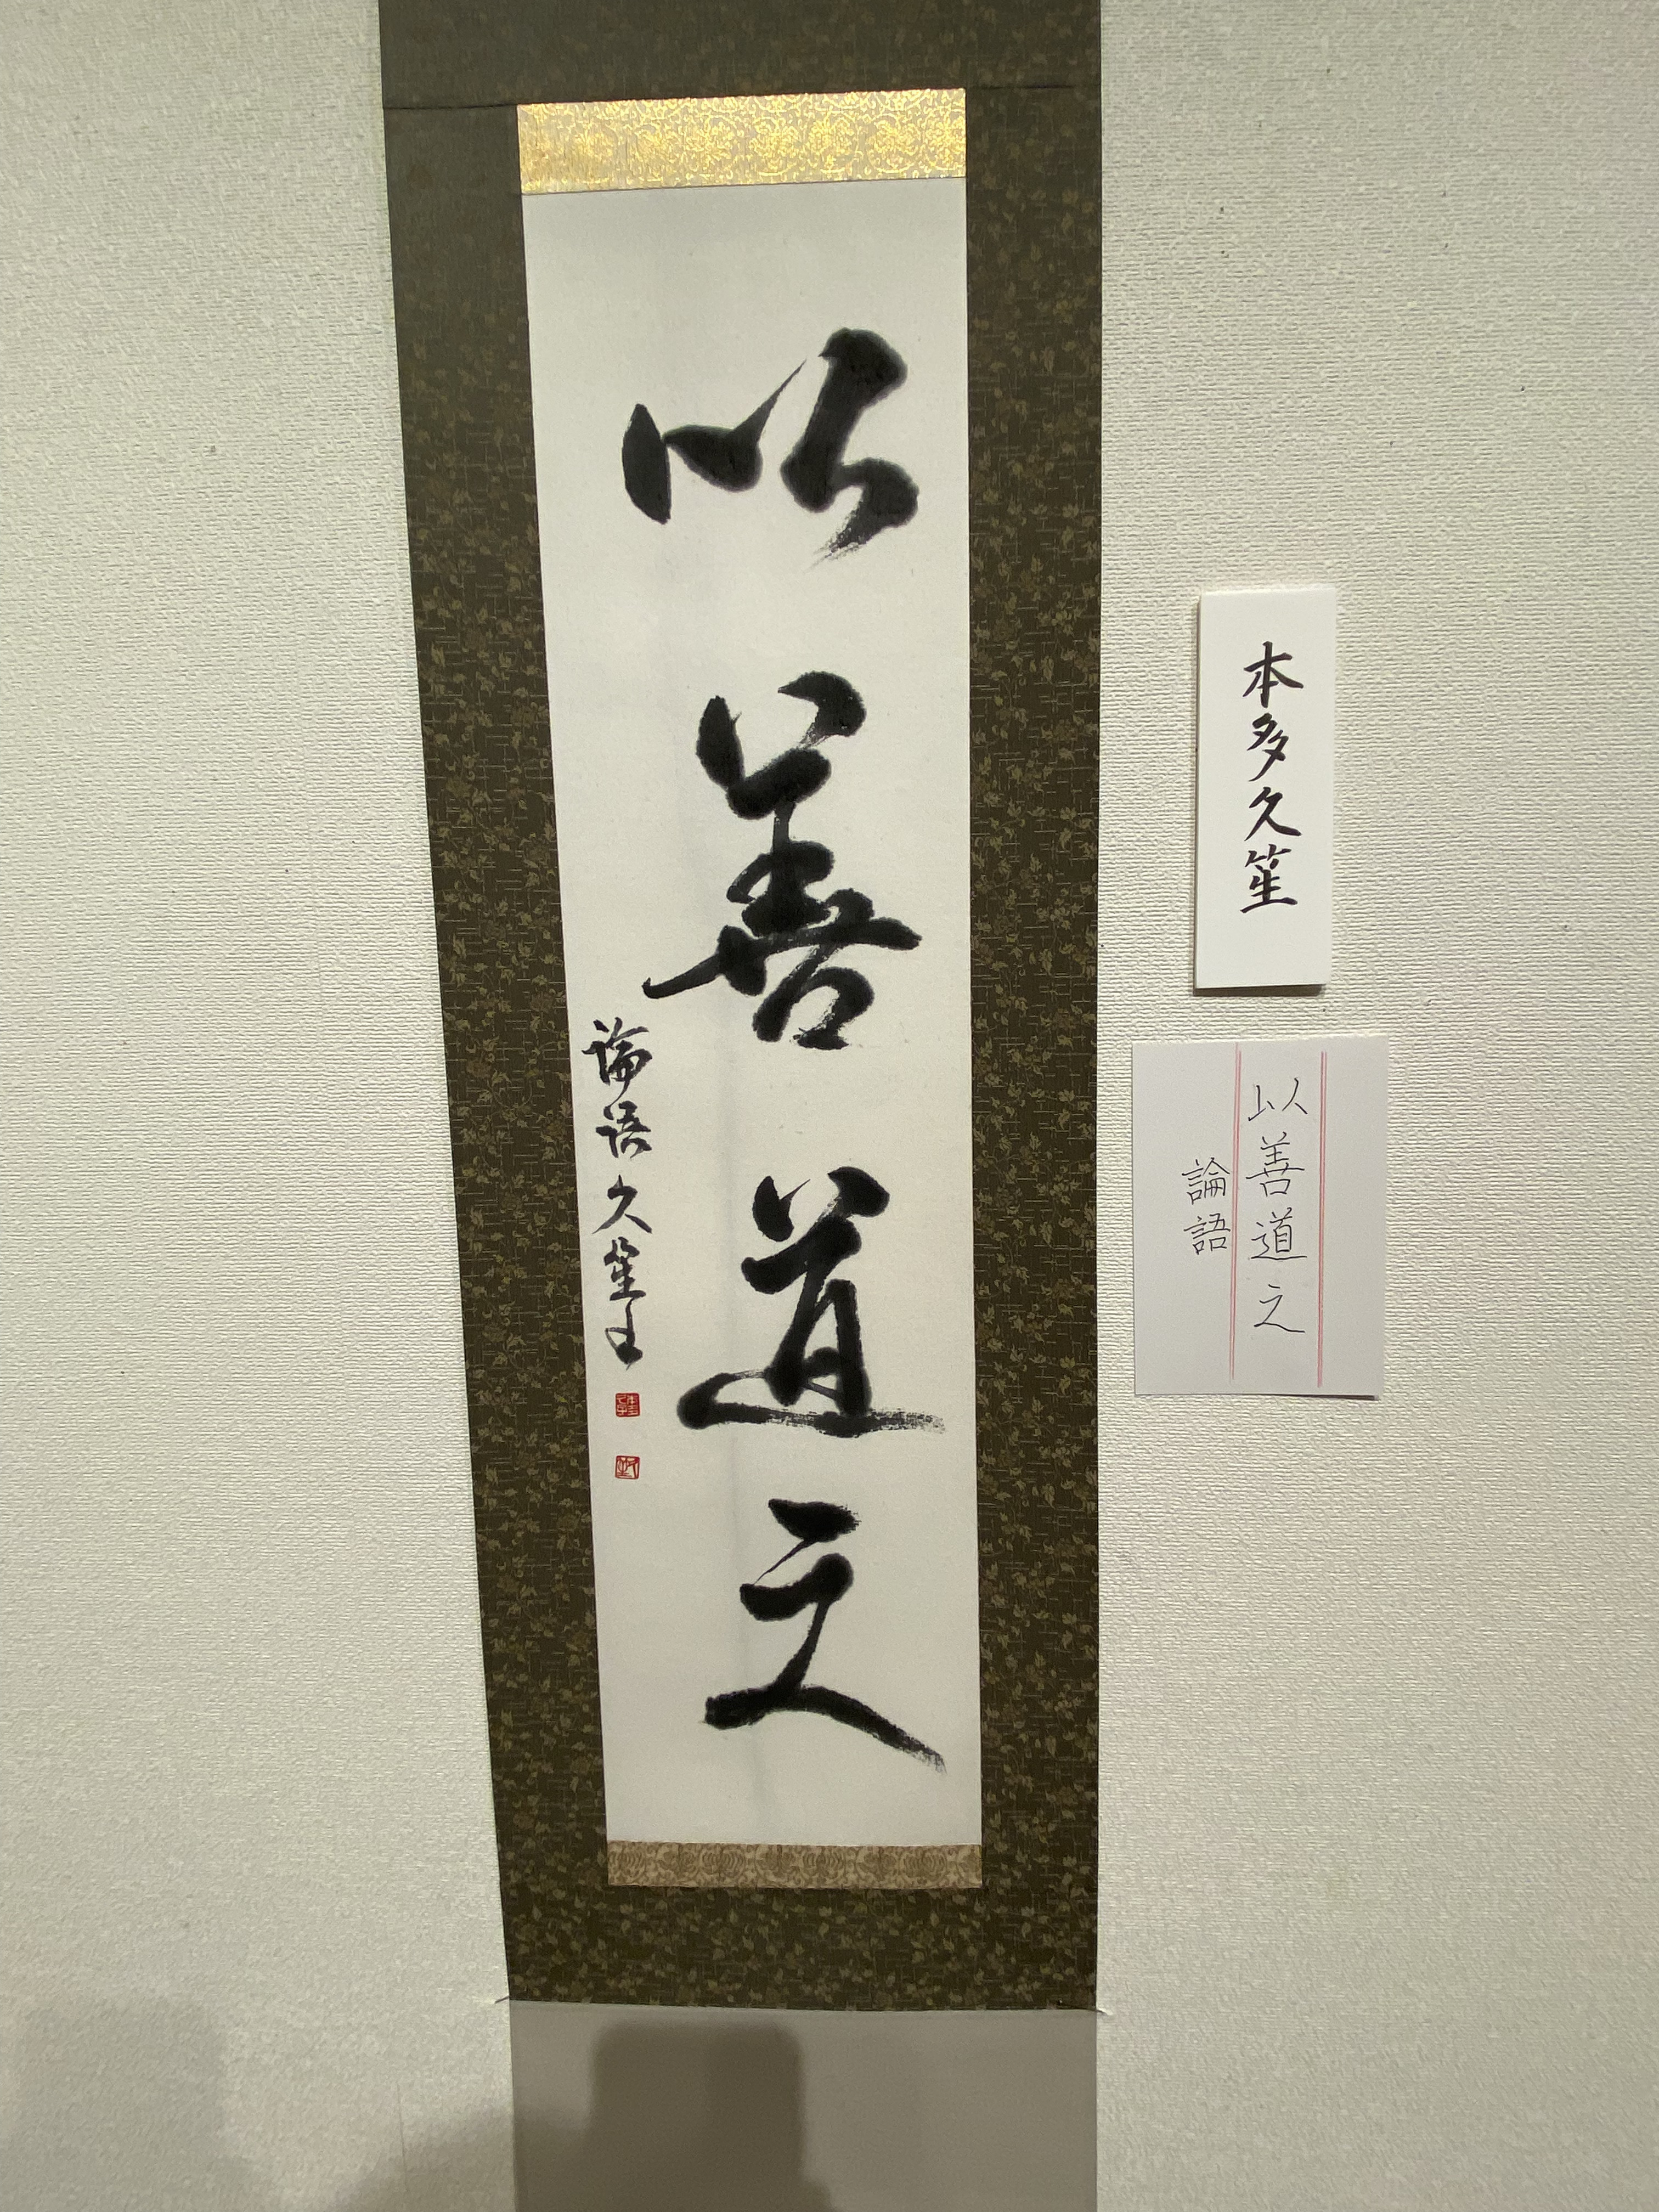 以善道之
論語 久笙書
本多久笙
以善道之
論語